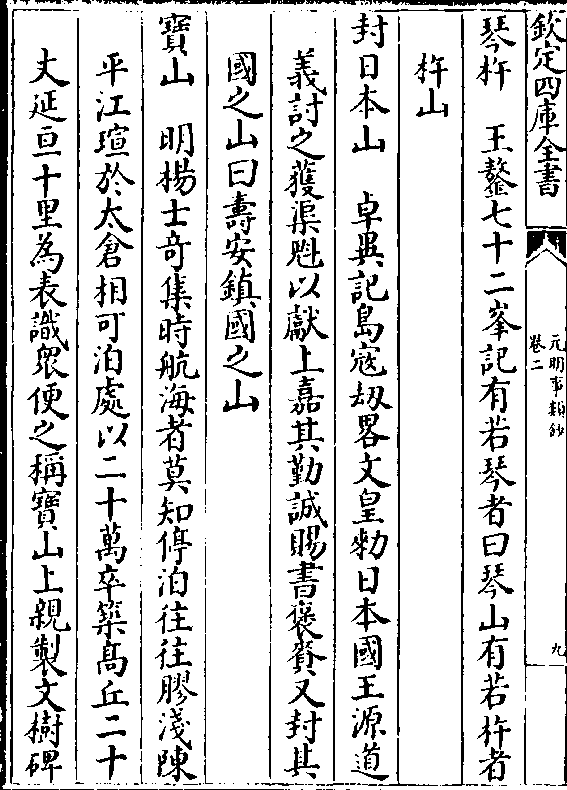 欽定四庫全書
元明事類鈔
卷二
九
琴杵　王鏊七十二峯記有若琴者曰琴山有若杵者
杵山
封日本山　卓異記島寇刼畧文皇勅日本國王源道
義討之獲渠魁以獻上嘉其勤誠賜書褒賚又封其
國之山曰壽安鎮國之山
寶山　明楊士竒集時航海者莫知停泊往往膠淺陳
平江瑄於太倉相可泊處以二十萬卒築髙丘二十
丈延亘十里為表識衆便之稱寶山上親製文樹碑